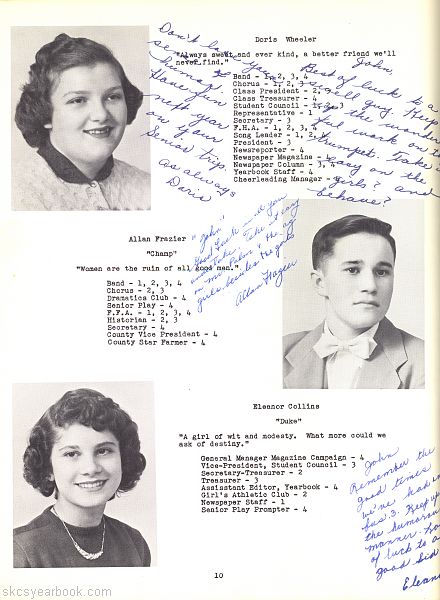 Doris Wheeler
"Always sweet and ever kind, a better friend we'll
never find."
Band - 1, 2, 3, 4
Chorus - 1, 2, 3
Class President - 2,
Class Treasurer - 4
Student Council - 1, 2, 3
Representative - 1
Secretary - 3
F.H.A. - 1, 2, 3, 4
Song Leader - 1, 2,
President - 3
Newsreporter - 4
Newspaper Magazine - 4
Newspaper Column - 3, 4
Yearbook Staff - 4
Cheerleading Manager -
Don't
Have fun
next year
on your
Senior trip
as always
Doris
John
Best of luck to a
swell guy. Keep
up the wonderful
work on
trumpet. Take it
easy on the
girls? and
behave?
Allan Frazier
"Champ"
"Women are the ruin of all good men."
Band - 1, 2, 3, 4
Chorus - 2, 3
Dramatics Club - 4
Senior Play - 4
F.F.A. - 1, 2, 3, 4
Historian - 2, 3
Secretary - 4
County Vice President - 4
County Star Farmer - 4
"John"
Good luck to you
and Take It easy
on the
girls besides the girls
Allan Frazier
Eleanor Collins
"Duke"
"A girl of wit and modesty. What more could we
ask of destiny."
General Manager Magazine Campaign - 4
Vice-President, Student Council - 3
Secretary-Treasurer - 2
Treasurer - 3
Assistant Editor, Yearbook - 4
Girl's Athletic Club - 2
Newspaper Staff - 1
Senior Play Prompter - 4
John
Remember the
good times
we've had in
bus. 3. Keep up
the humorous
manner.
of luck to a
good kid
Eleanor
10
skcsyearbook.com